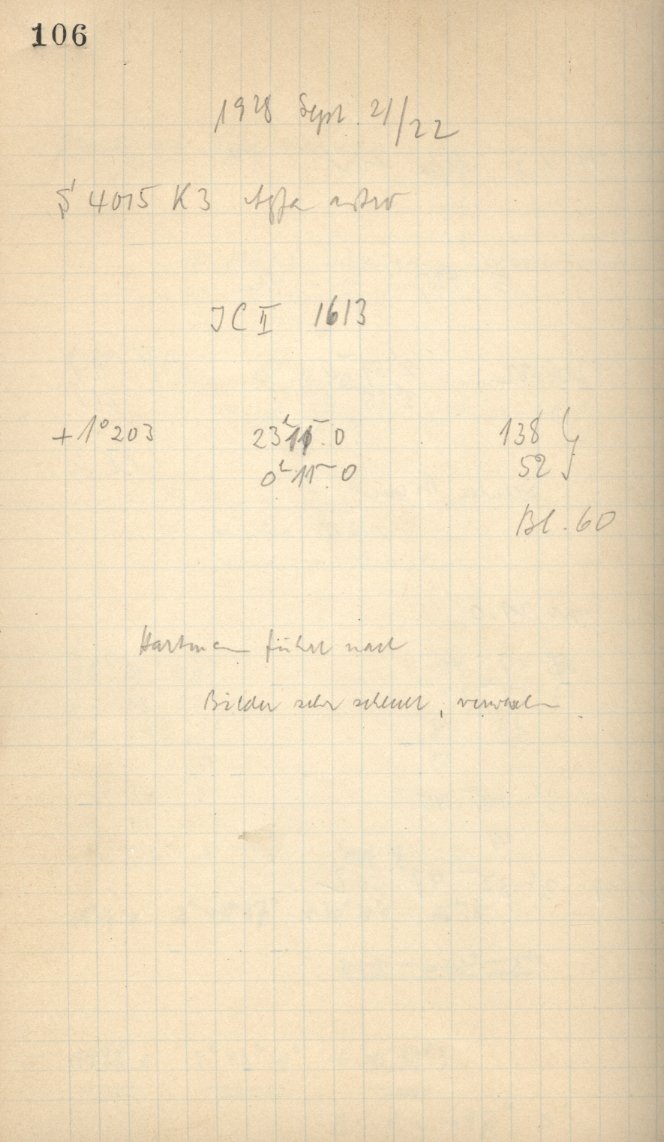 106
1928 Sept. 21/22
S 4015 K3 Agfa astro
JC II 1613
+1°203 23ʰ15.0 138
0ʰ15.0 52
Bl. 60
Hartmann führt nach
Bilder sehr schlecht, verwaschen